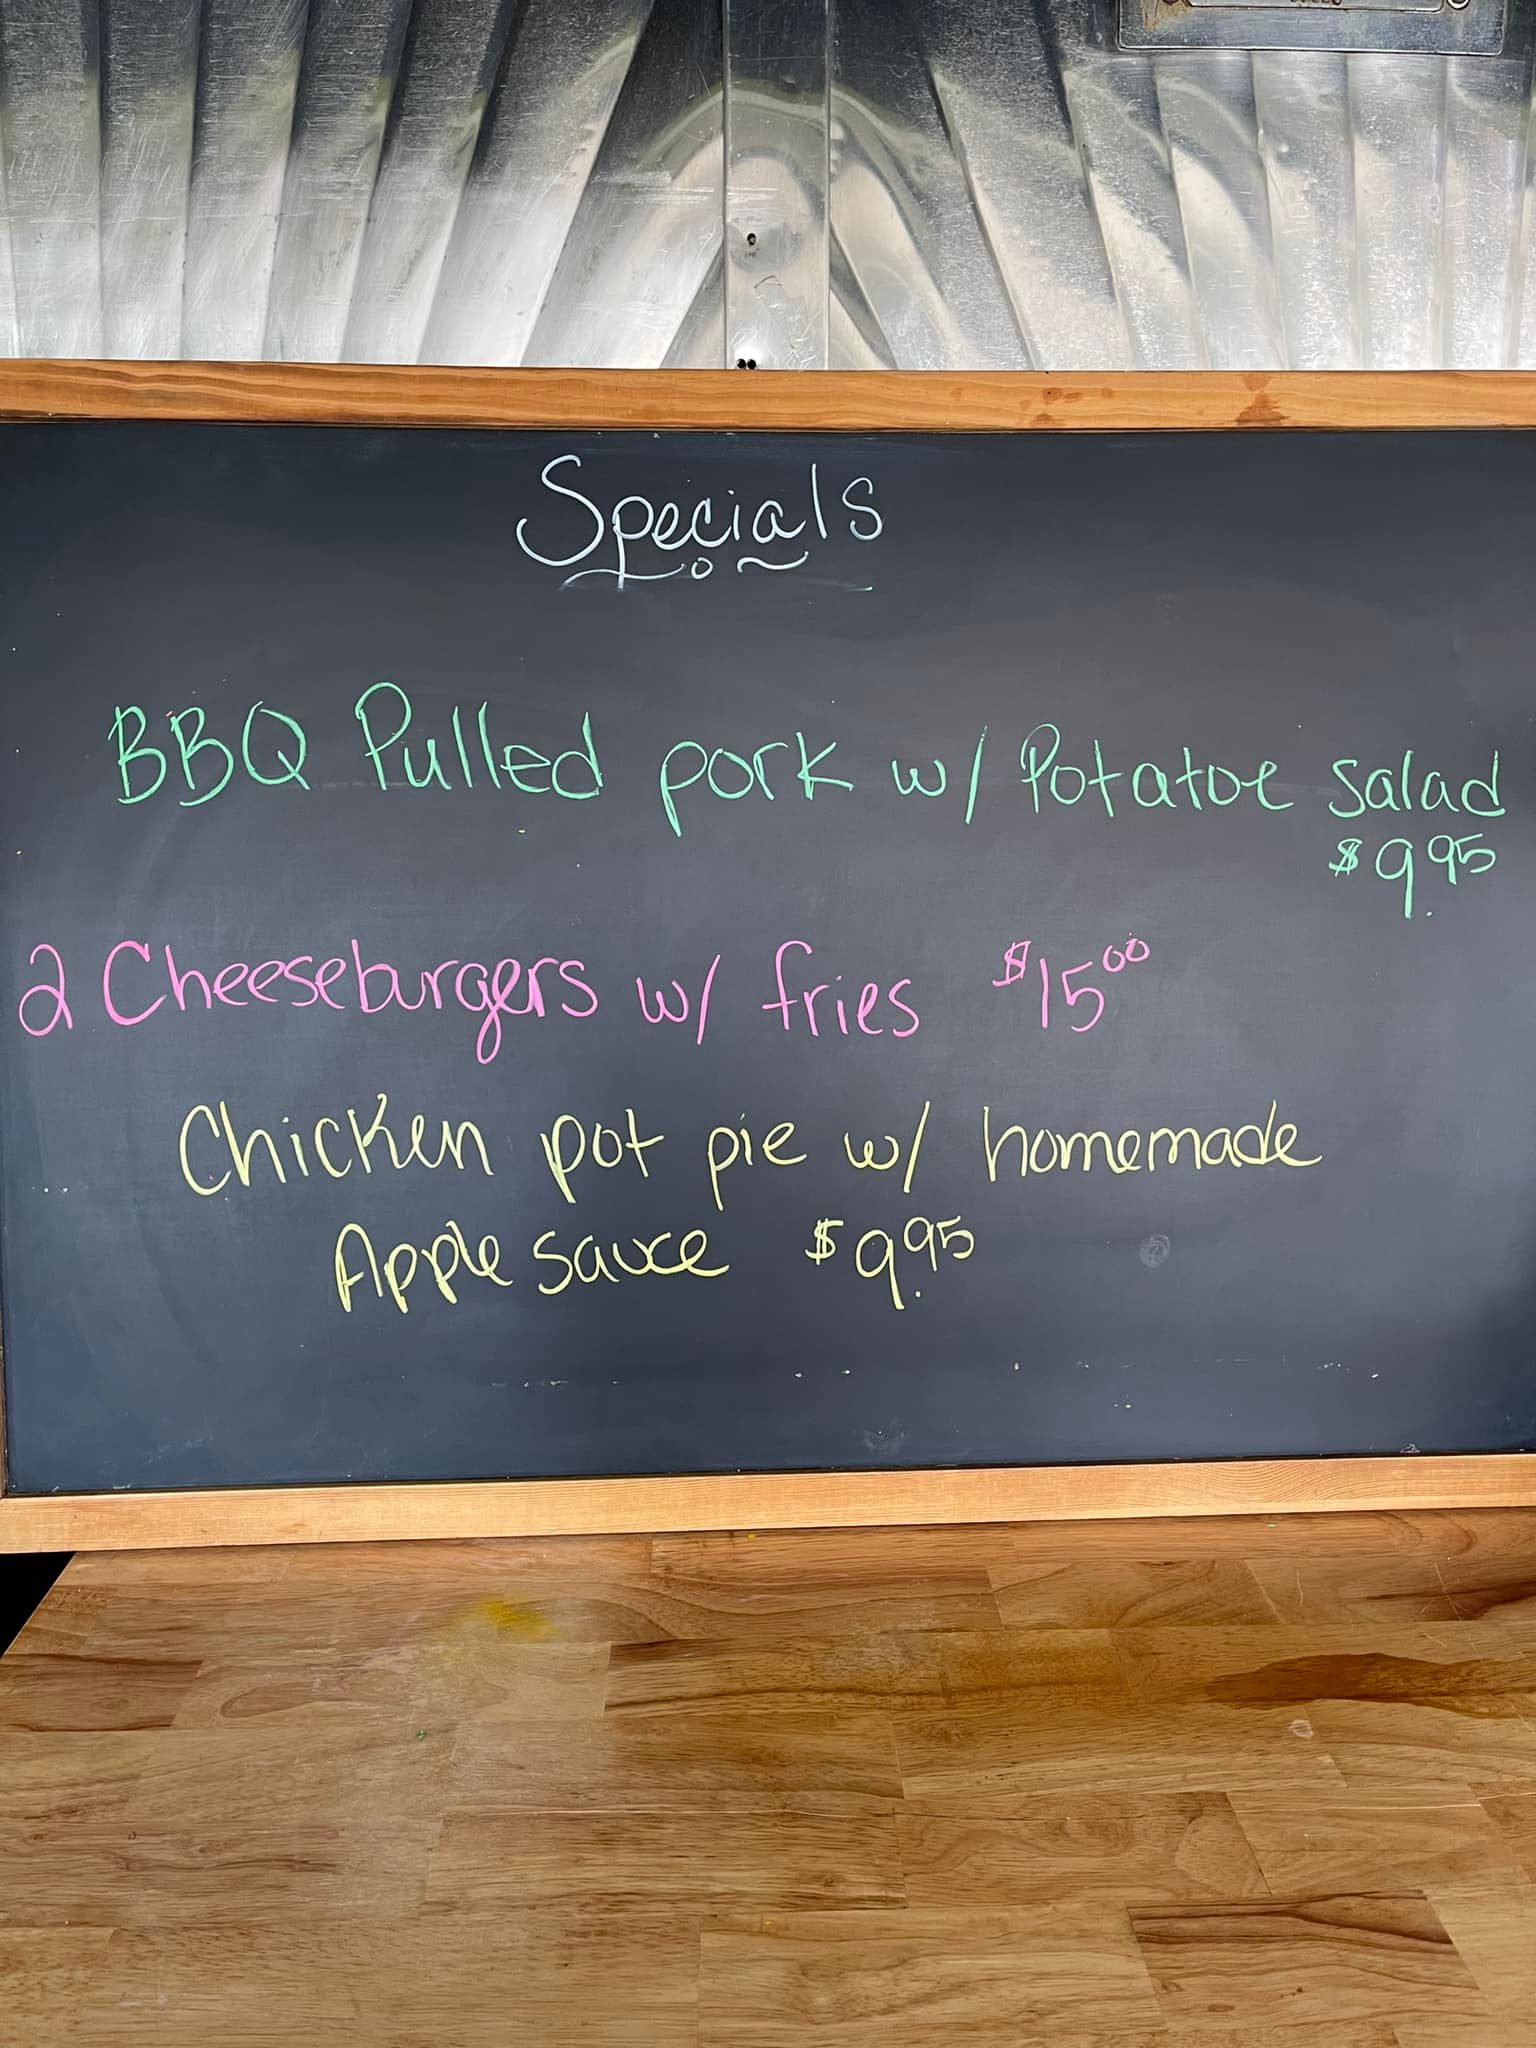 Specials
BBQ Pulled pork w/ Potatoe salad
$9.95
2 Cheeseburgers w/ fries $1500
Chicken pot pie w/ homemade
Apple sauce $9.95